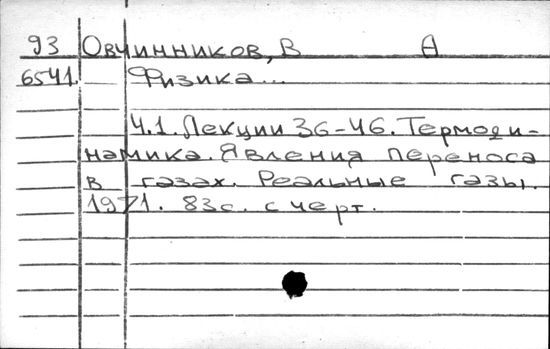 93 Овчинников, В А
6541. Физика...
Ч.1. Лекции 36-46. Термоди-
намика. Явления переноса
в газах. Реальные газы.
1971. 83с. с черт.